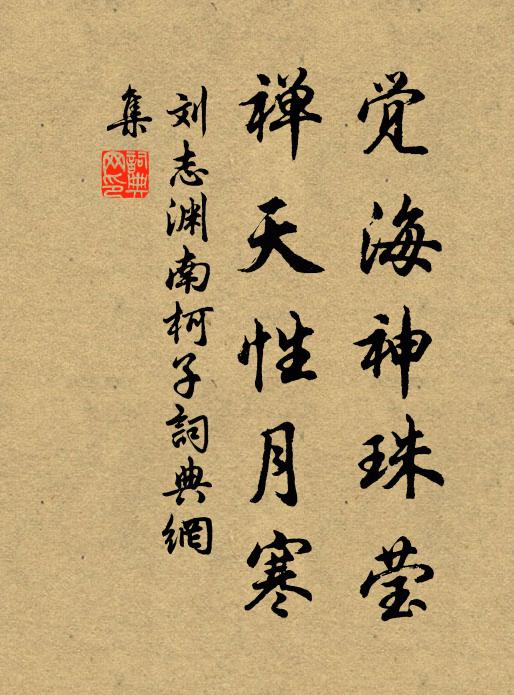 觉海神珠莹
禅天性月寒
刘志渊南柯子詞典網
集
詞典
网印